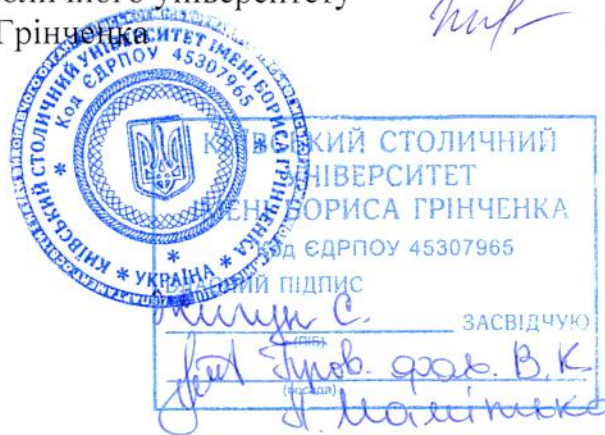 столичного університету
Грінченка
КИЇВСЬКИЙ СТОЛИЧНИЙ УНІВЕРСИТЕТ ІМЕНІ БОРИСА ГРІНЧЕНКА
Код ЄДРПОУ 45307965
* УКРАЇНА *
КИЇВСЬКИЙ СТОЛИЧНИЙ
УНІВЕРСИТЕТ
ІМЕНІ БОРИСА ГРІНЧЕНКА
Код ЄДРПОУ 45307965
ВЛАСНИЙ ПІДПИС
С.
ЗАСВІДЧУЮ
(ПІБ)
Пров. фах. В.К.
(посада)